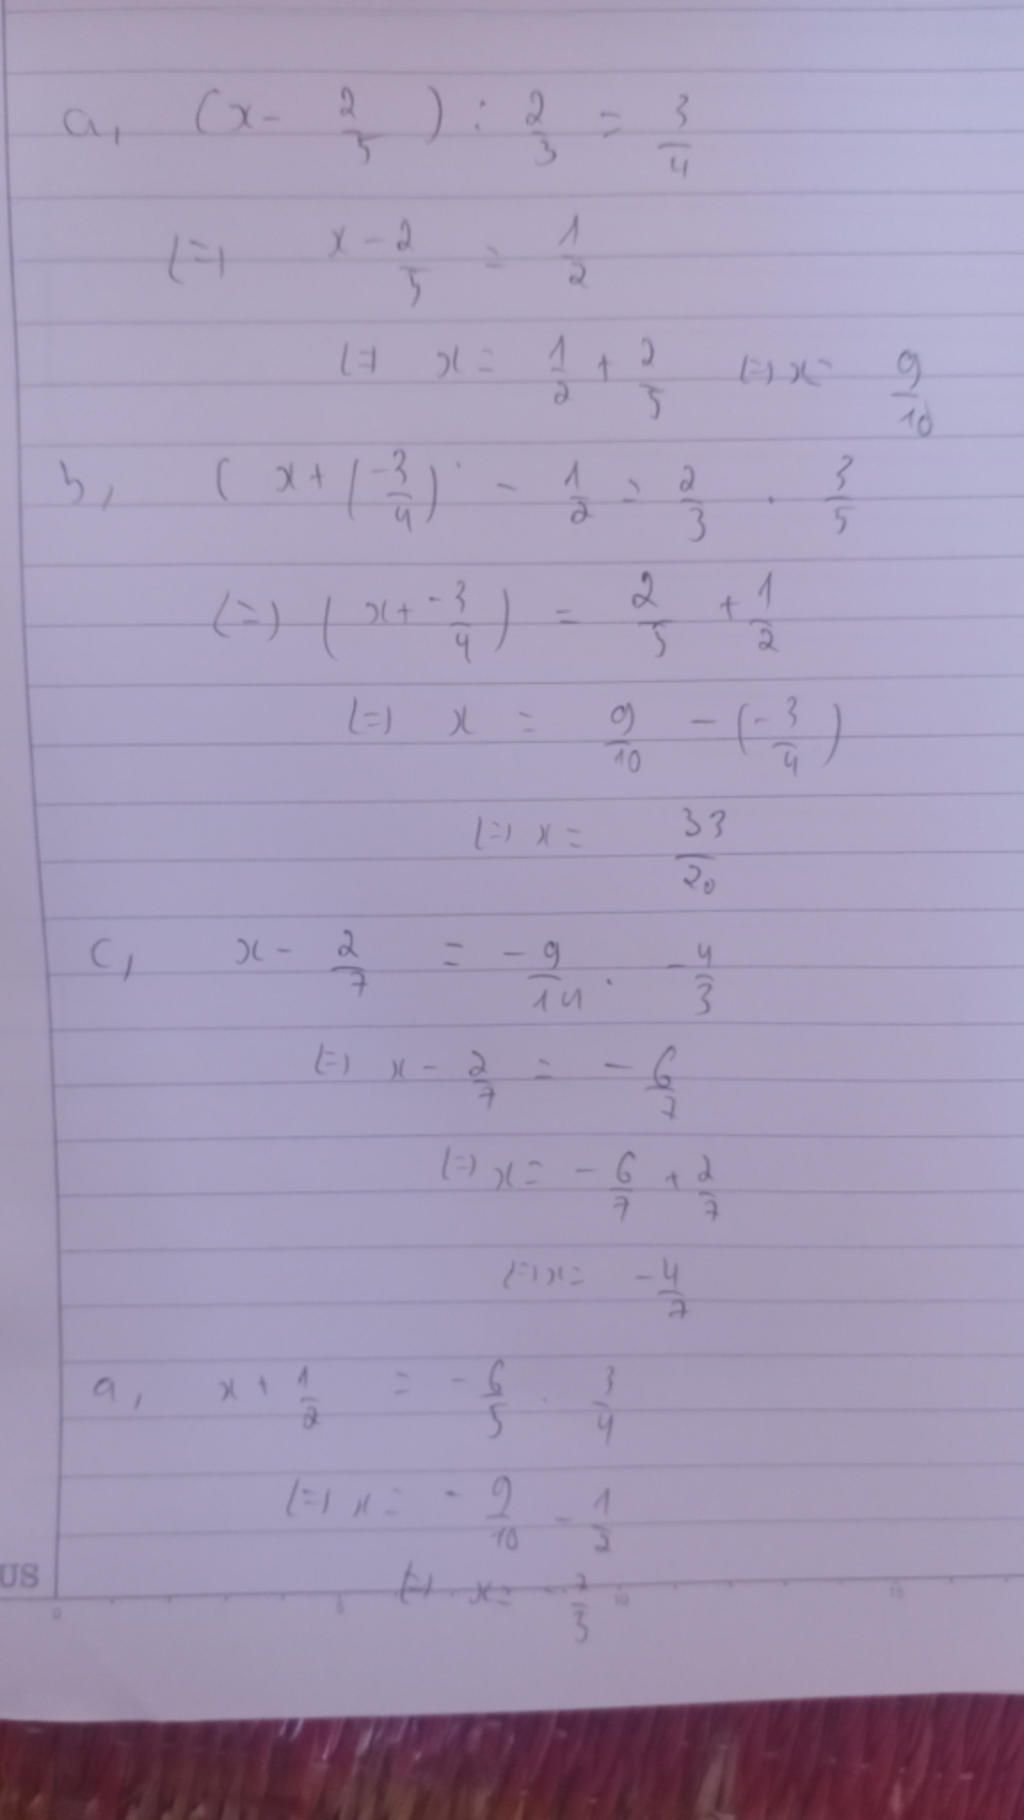 a, (x - 2/5) : 2/3 = 3/4
(=) x - 2/5 = 1/2
(=) x = 1/2 + 2/5 (=) x = 9/10
b, ( x + (-3/4) - 1/2 = 2/3 . 3/5
(=) ( x + -3/4 ) = 2/5 + 1/2
(=) x = 9/10 - (-3/4)
(=) x = 33/20
c, x - 2/7 = -9/14 . -4/3
(=) x - 2/7 = -6/7
(=) x = -6/7 + 2/7
(=) x = -4/7
a, x + 1/2 = -6/5 . 3/4
(=) x = -9/10 - 1/2
US (=) x = -7/3
0 5 10 15